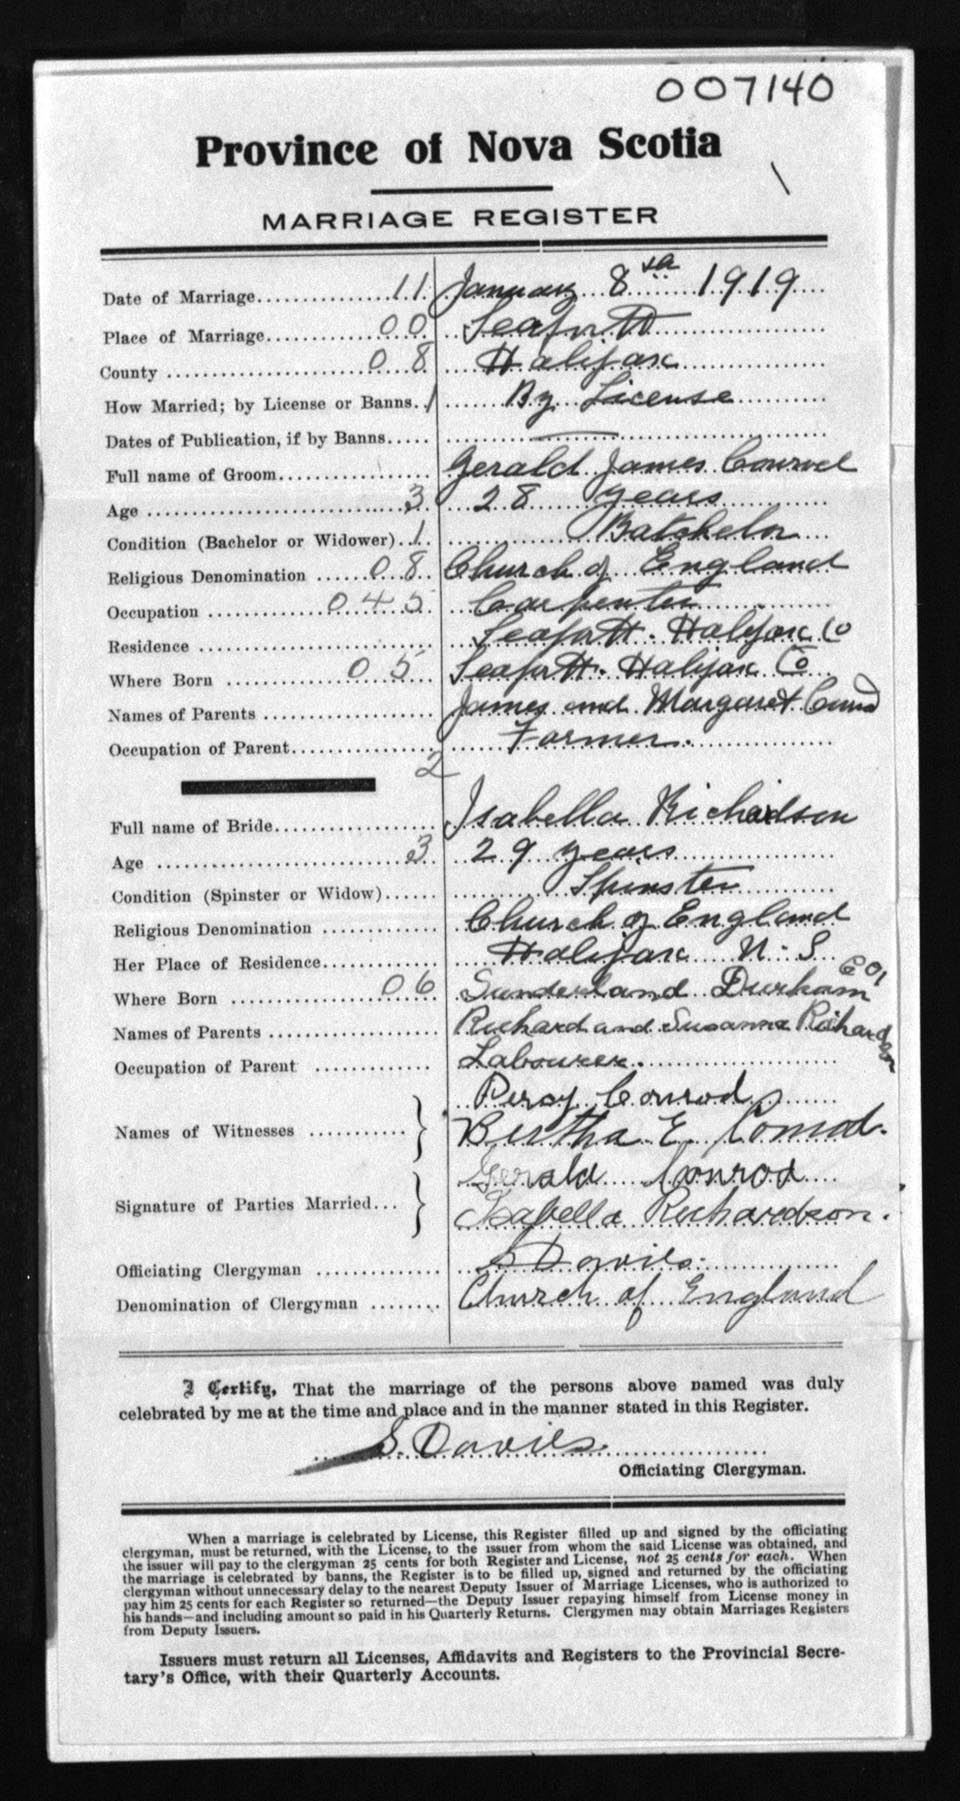 007140
Province of Nova Scotia
MARRIAGE REGISTER
Date of Marriage 11 January 8th 1919
Place of Marriage 00 Seaforth
County 08 Halifax
How Married; by License or Banns 1 By License
Dates of Publication, if by Banns —
Full name of Groom Gerald James Conrod
Age 3 28 years
Condition (Bachelor or Widower) 1 Batchelor
Religious Denomination 08 Church of England
Occupation 045 Carpenter
Residence Seaforth. Halifax Co
Where Born 05 Seaforth. Halifax Co
Names of Parents James and Margaret
Occupation of Parent Farmer.
2
Full name of Bride Isabella Richardson
Age 3 29 years
Condition (Spinster or Widow) Spinster
Religious Denomination Church of England
Her Place of Residence Halifax N. S
Where Born 06 Sunderland Durham
Names of Parents Richard and Susanna Richardson
Occupation of Parent Labourer.
Percy Conrod
Names of Witnesses } Bertha E. Conrod.
Gerald Conrod
Signature of Parties Married } Isabella Richardson.
Officiating Clergyman S Davies.
Denomination of Clergyman Church of England
I Certify, That the marriage of the persons above named was duly
celebrated by me at the time and place and in the manner stated in this Register.
S. Davies
Officiating Clergyman.
When a marriage is celebrated by License, this Register filled up and signed by the officiating
clergyman, must be returned, with the License, to the issuer from whom the said License was obtained, and
the issuer will pay to the clergyman 25 cents for both Register and License, not 25 cents for each. When
the marriage is celebrated by banns, the Register is to be filled up, signed and returned by the officiating
clergyman without unnecessary delay to the nearest Deputy Issuer of Marriage Licenses, who is authorized to
pay him 25 cents for each Register so returned—the Deputy Issuer repaying himself from License money in
his hands—and including amount so paid in his Quarterly Returns. Clergymen may obtain Marriages Registers
from Deputy Issuers.
Issuers must return all Licenses, Affidavits and Registers to the Provincial Secre-
tary's Office, with their Quarterly Accounts.